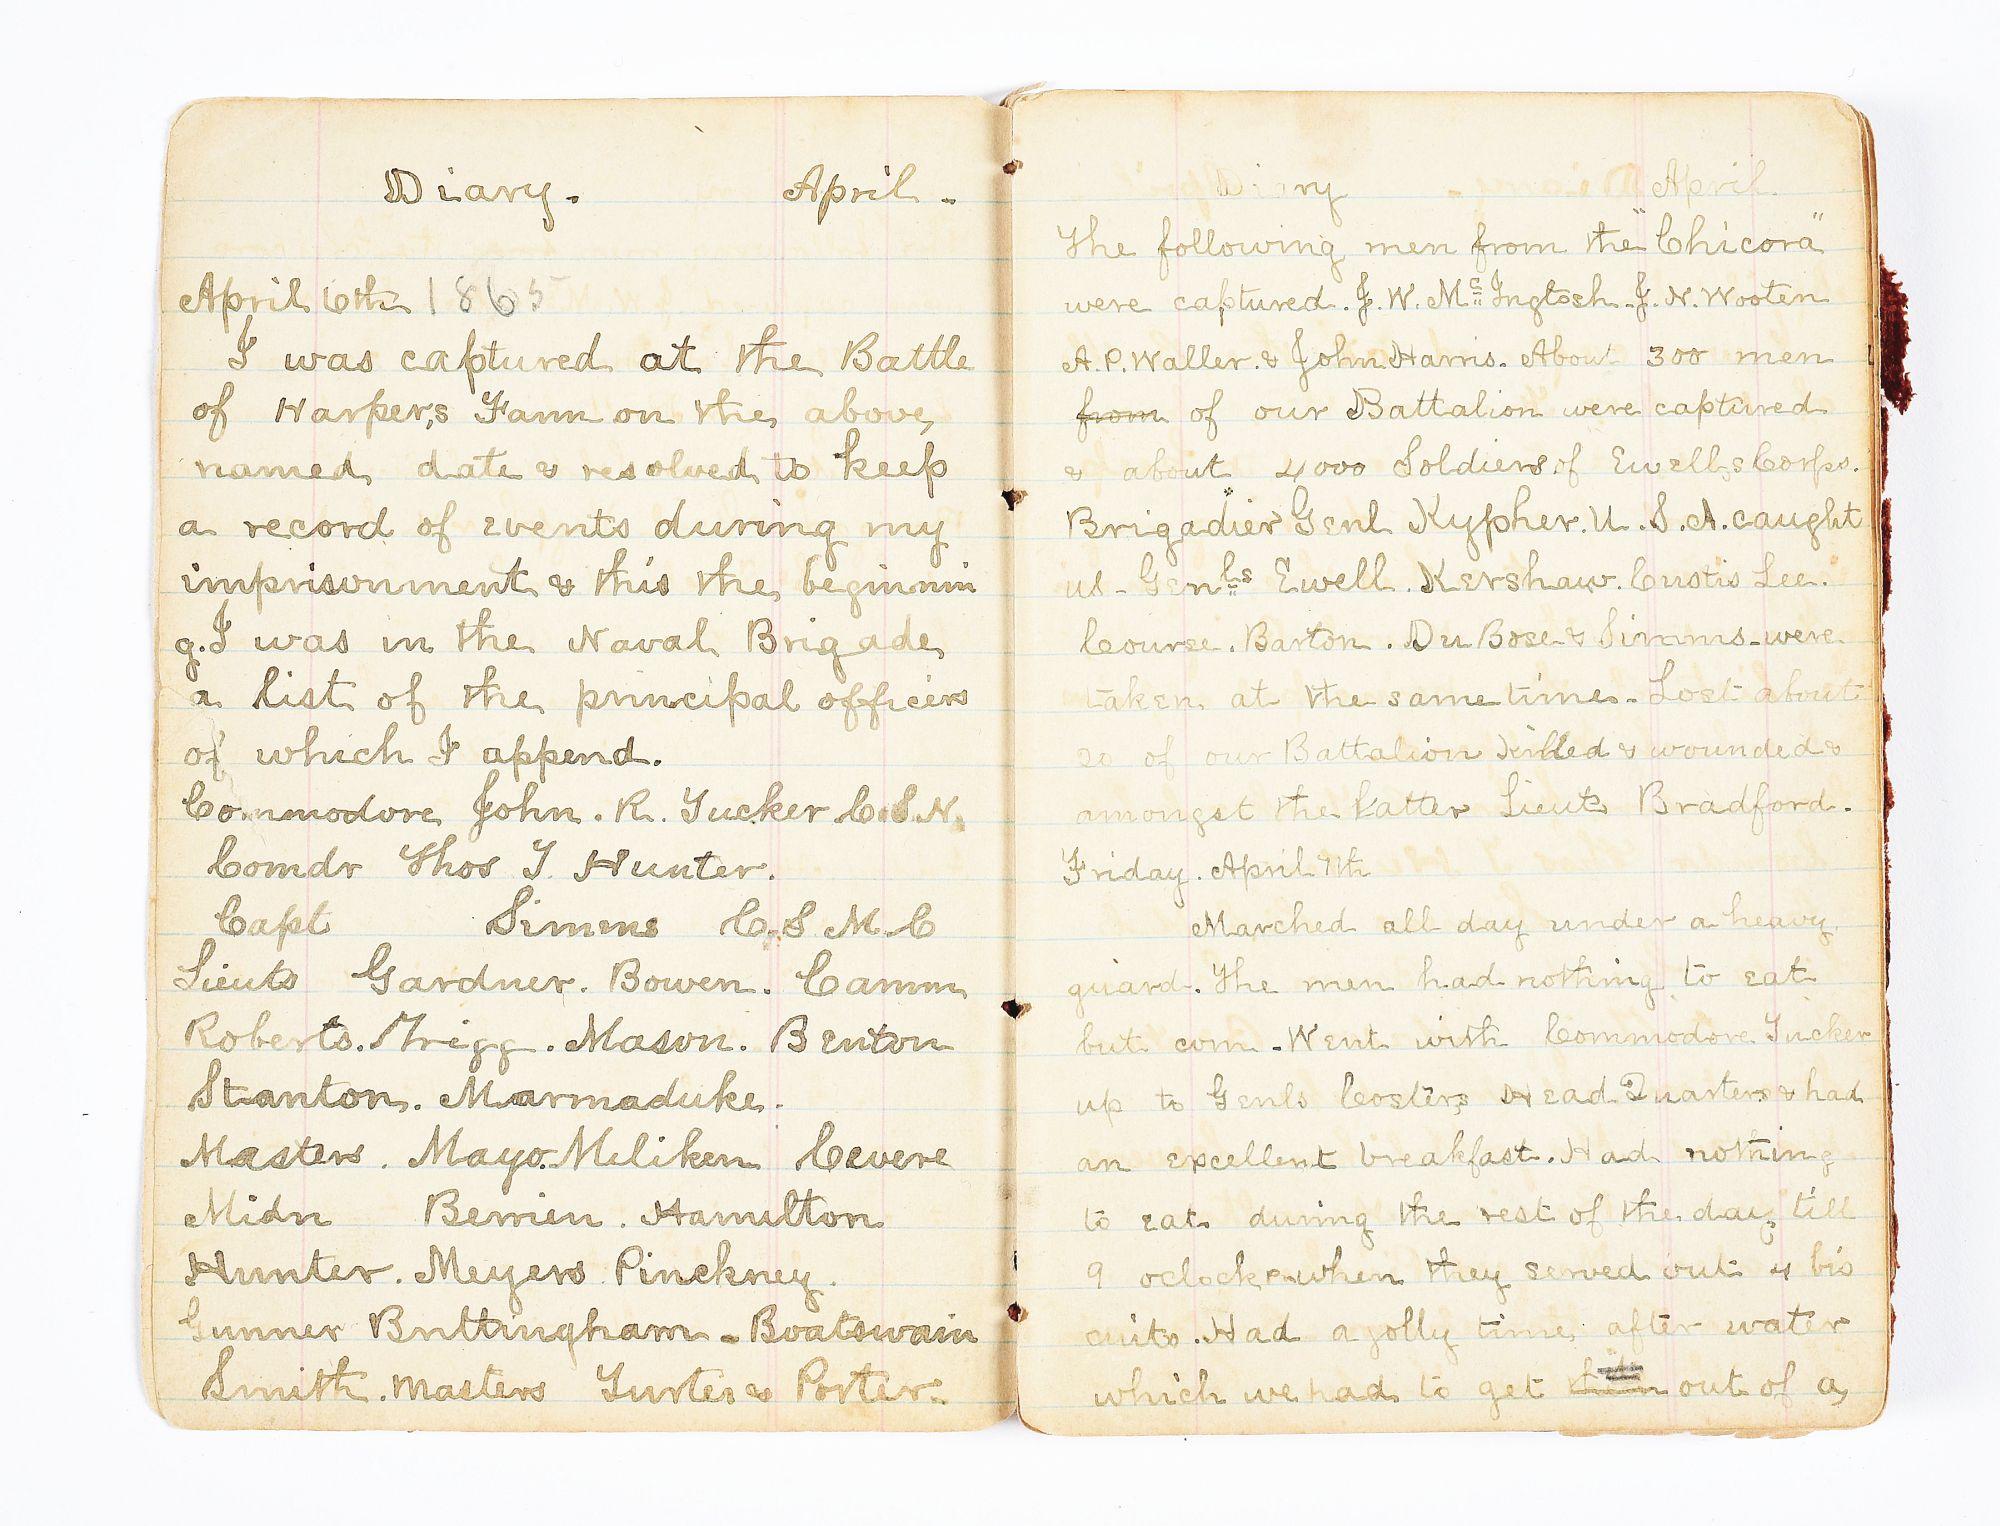 Diary. April.
April 6th 1865
I was captured at the Battle
of Harper,s Farm on the above
named date & resolved to keep
a record of events during my
imprisonment & this the beginnin
g. I was in the Naval Brigade
a list of the principal officers
of which I append.
Commodore John. R. Tucker C.S.N.
Comdr Thos T. Hunter.
Capt Simms C.S.M.C
Lieuts Gardner. Bowen. Camm
Roberts. Trigg. Mason. Benton
Stanton. Marmaduke.
Masters. Mayo. Meliken Cevere
Midn Berrien. Hamilton
Hunter. Meyers Pinckney.
Gunner Bruttingham - Boatswain
Smith. Masters Turter & Porter.
Diary April.
The following men from the "Chicora"
were captured. J. W. Mc Ingtosh. J. N. Wooten
A. P. Waller. & John Harris. About 300 men
from of our Battalion were captured
& about 4000 Soldiers of Ewell,s Corps.
Brigadier Genl Kypher. U. S. A. caught
us - Genls Ewell. Kershaw. Custis Lee.
Course. Barton. Du Bose & Simms - were
taken at the same time. Lost about
20 of our Battalion Killed & wounded &
amongst the latter Lieut Bradford.
Friday. April 7th
Marched all day under a heavy
guard. The men had nothing to eat
but corn. Went with Commodore Tucker
up to Genls Costers Head Quarters & had
an excellent breakfast. Had nothing
to eat during the rest of the day, till
9 oclock when they served out 4 bis
cuits. Had a jolly time after water
which we had to get out of a